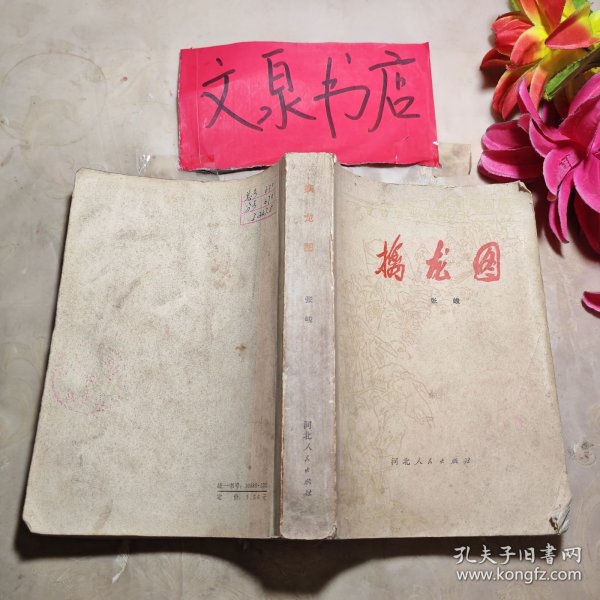 文泉书店
擒龙图
张峻
河北人民出版社
擒龙图
张峻
河北人民出版社
统一书号：
定价：1.54元
孔夫子旧书网
www.kongfz.com